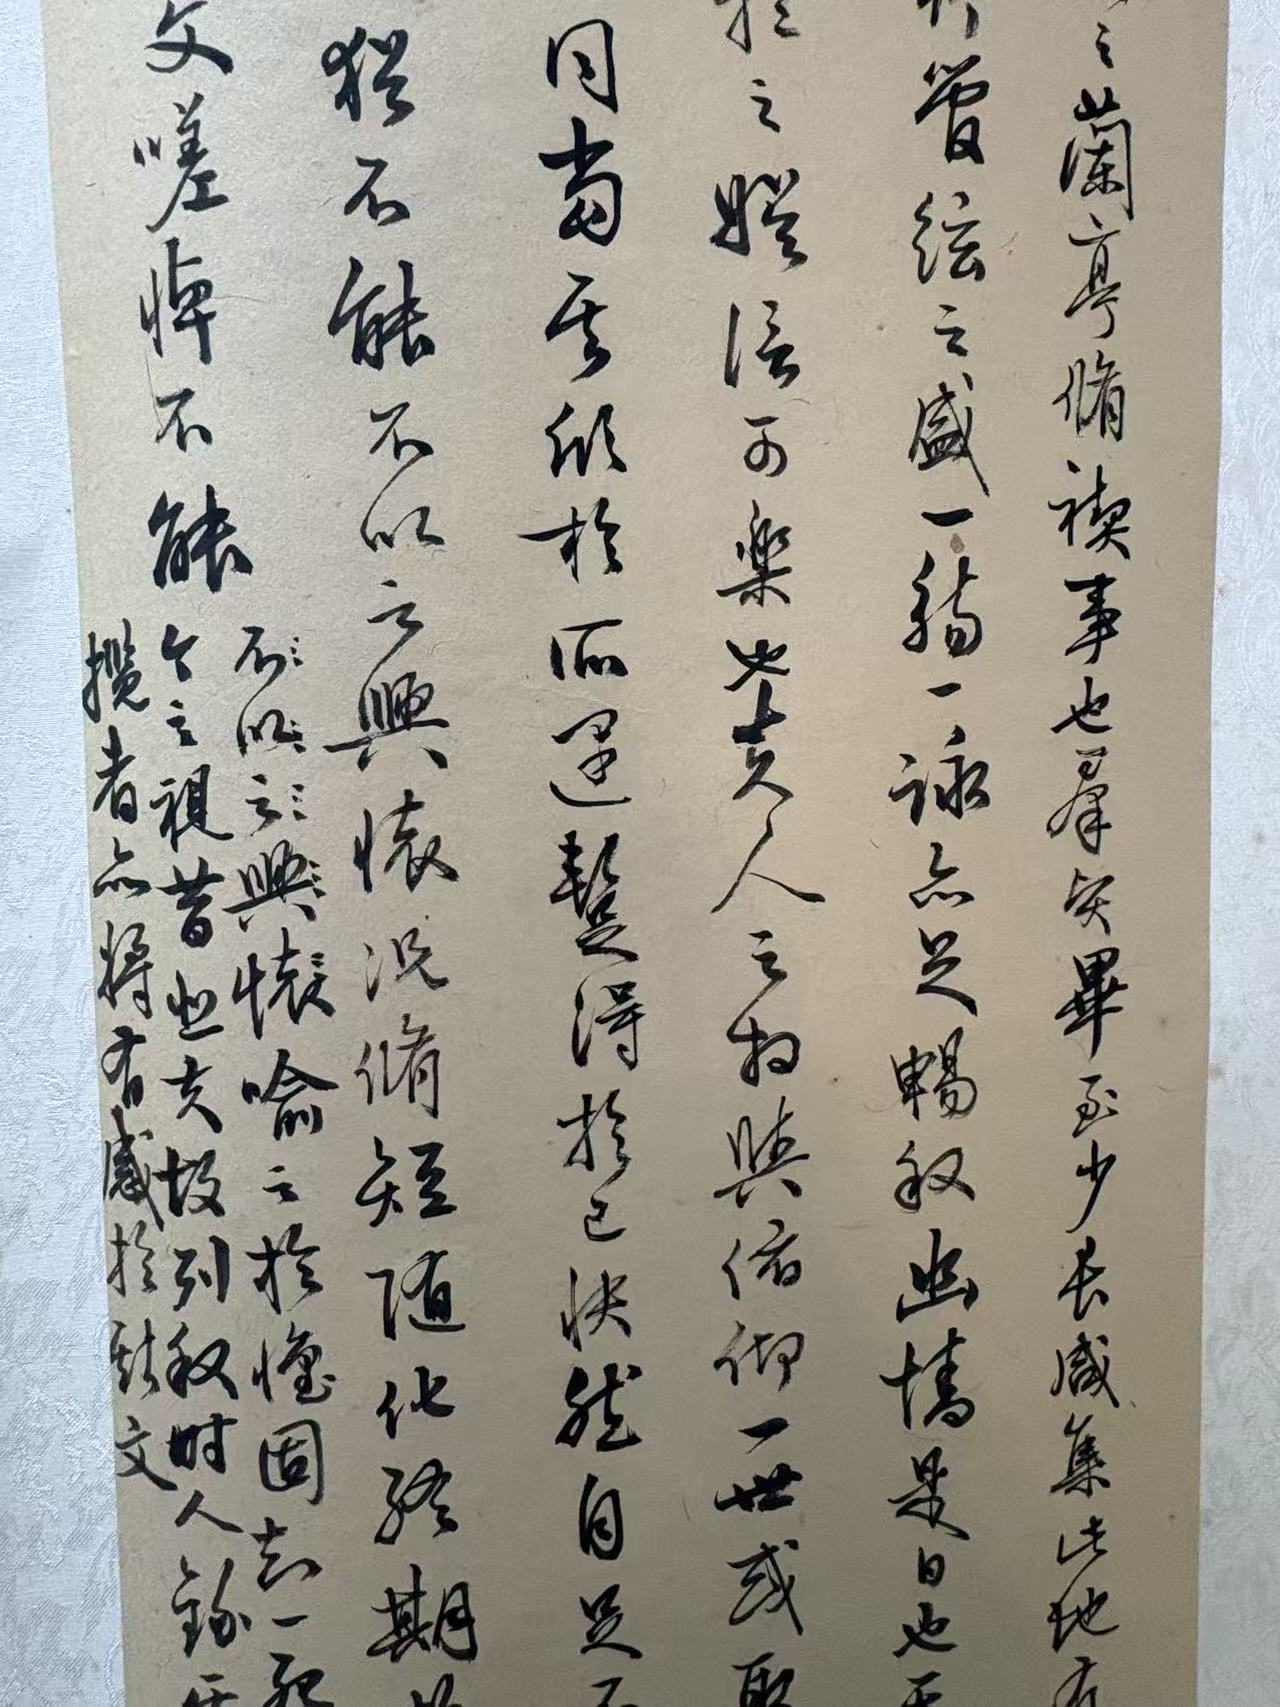 之蘭亭脩禊事也羣賢畢至少長咸集此地有
管絃之盛一觴一詠亦足暢叙幽情是日也天
於之娛信可樂也夫人之相與俯仰一世或取
同當其欣於所遇暫得於己快然自足不
猶不能不以之興懷況脩短隨化終期
文嗟悼不能
不以之興懷喻之於懷固知一死
今之視昔悲夫故列叙時人錄其
攬者亦將有感於斯文